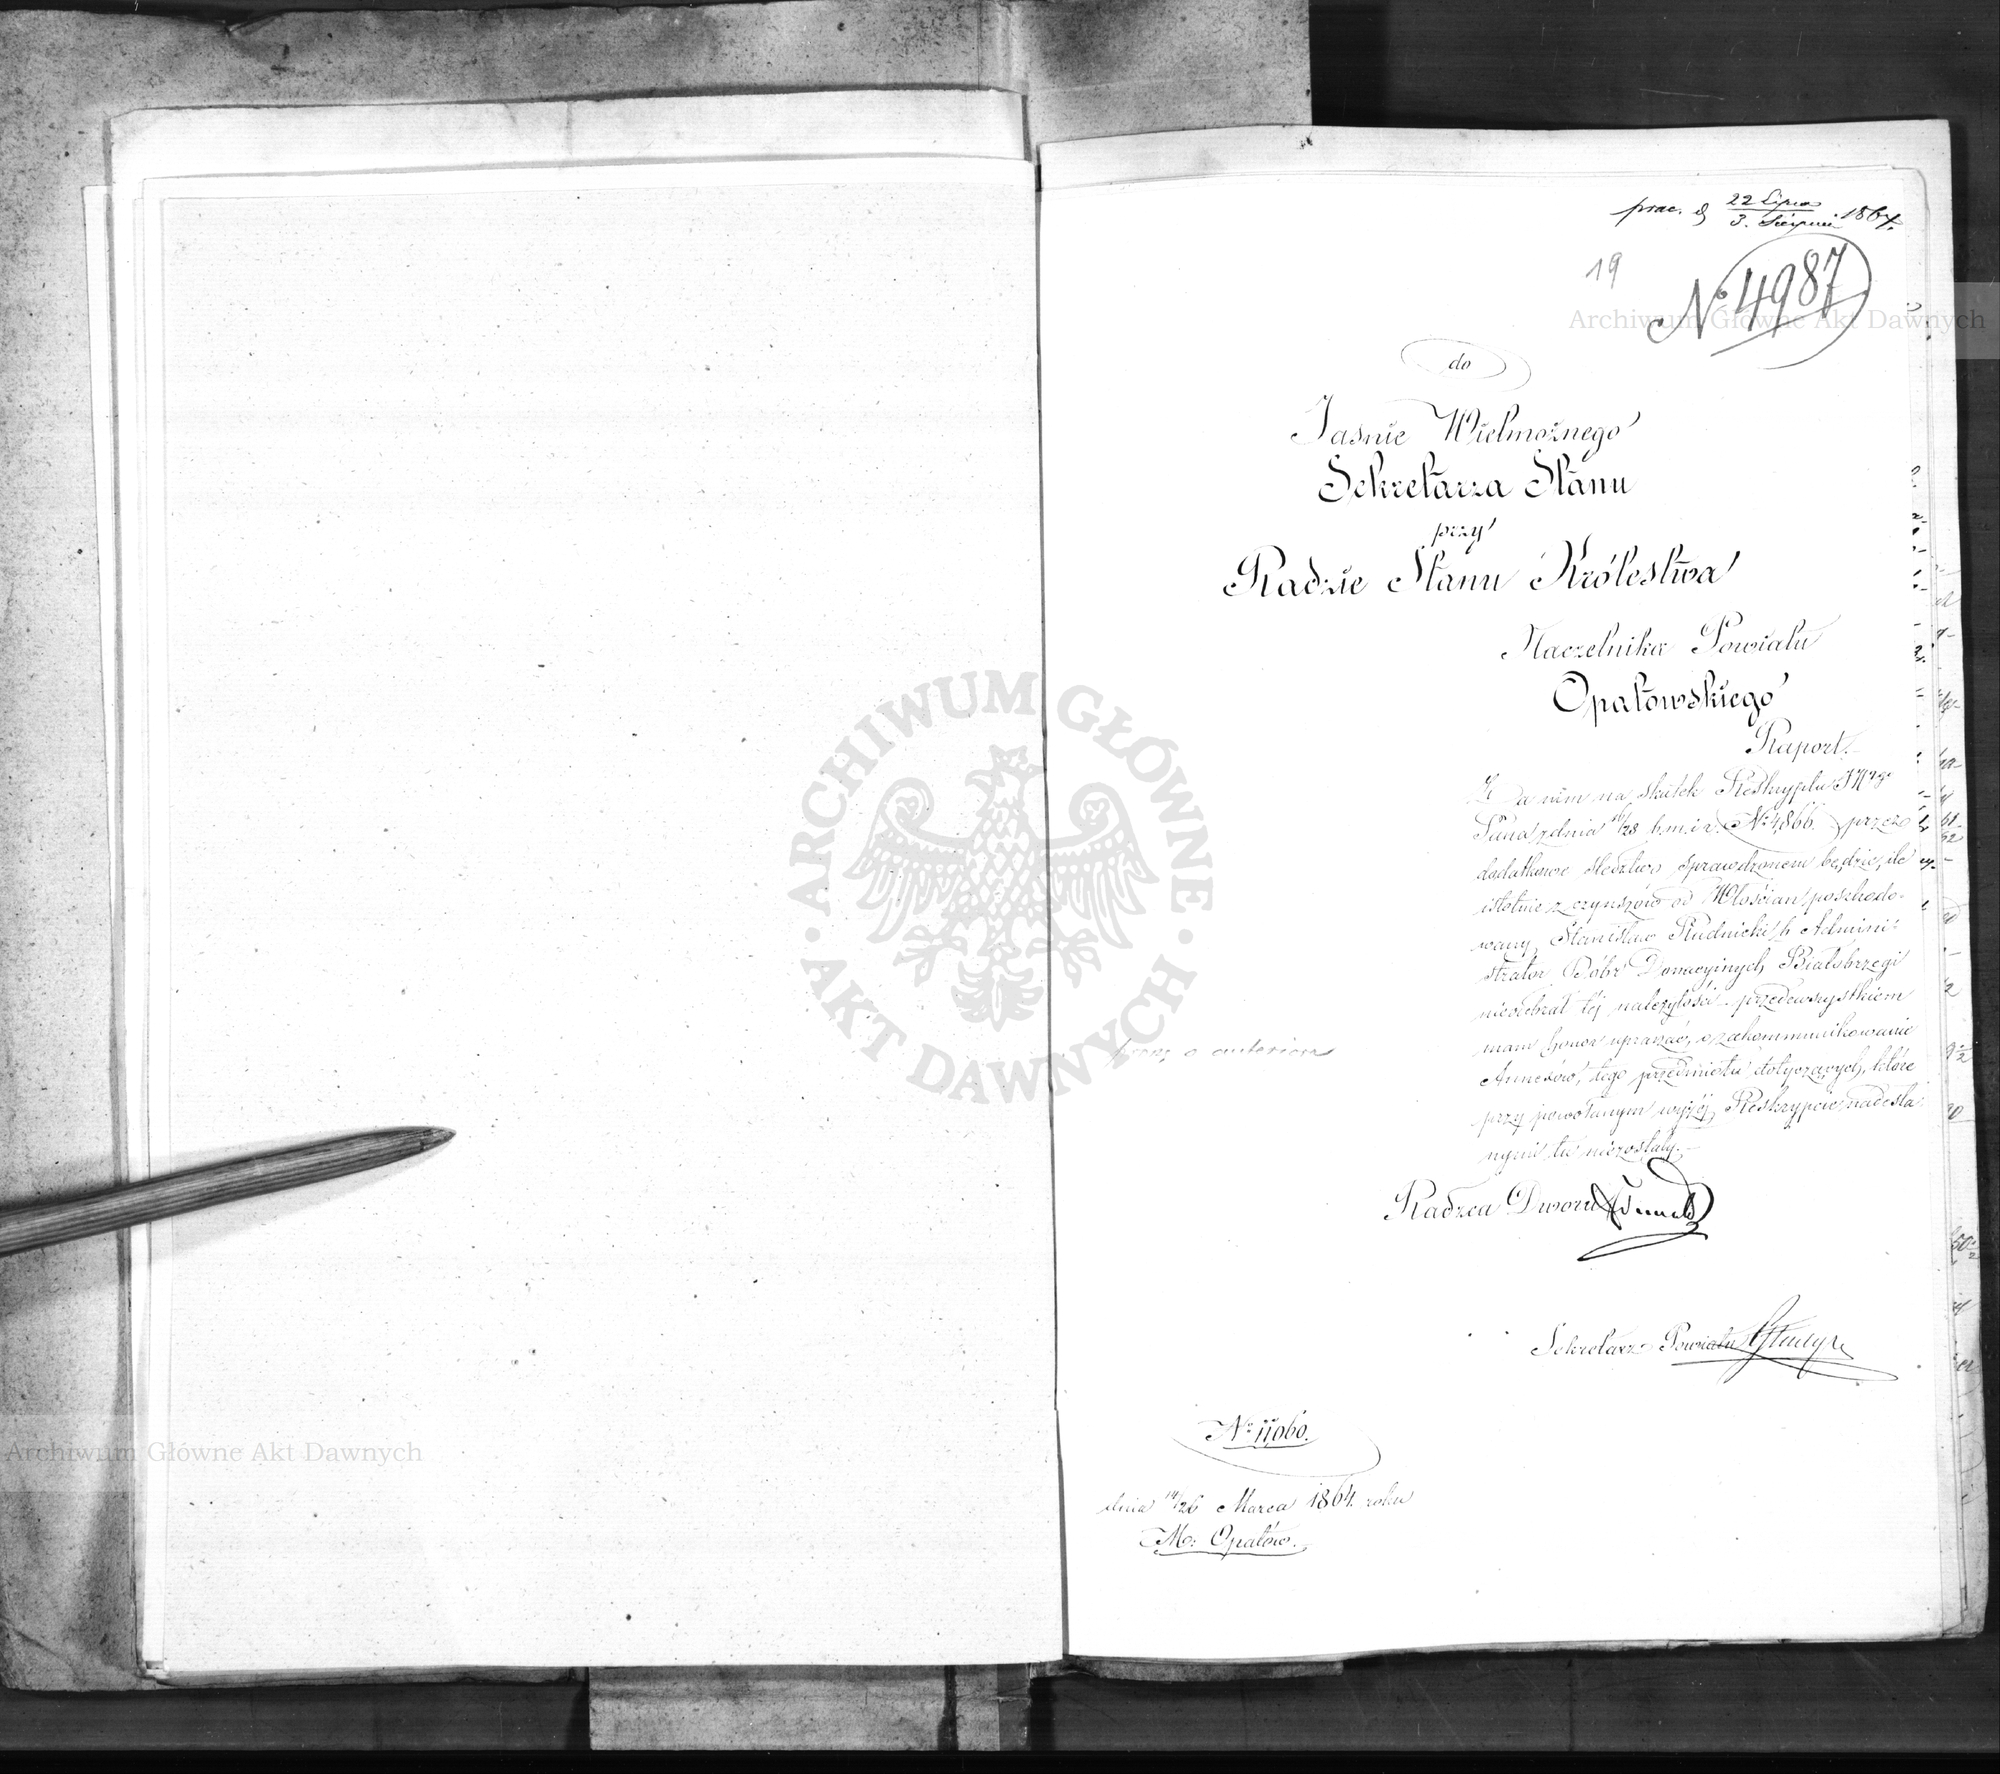 22 Lipca
3. Sierpnia 1864.
19
N° 4987
do
Jaśnie Wielmożnego
Sekretarza Stanu
przy
Radzie Stanu Królestwa
Naczelnika Powiatu
Opatowskiego
Raport.
Zanim na skutek Reskryptu JWgo
Pana z dnia 16/28 b. m. i r. N° 4,866. przez
dodatkowe śledztwo sprawdzonem będzie, ile
istotnie z czynszów od Włościan poszkodo-
wany Stanisław Rudnicki b. Admini-
strator Dóbr Donacyjnych Białobrzegi
nieodebrał tej należytości – przedewszystkiem
mam honor upraszać, o zakommunikowanie
Annexów, tego przedmiotu dotyczących, które
przy powołanym wyżej Reskrypcie nadesła-
nymi tu niezostały.–
Radzca Dworu
Sekretarz Powiatu
N° 11,060.
dnia 14/26 Marca 1864. roku
M. Opatów.
Archiwum Główne Akt Dawnych
ARCHIWUM GŁÓWNE · AKT DAWNYCH ·
Archiwum Główne Akt Dawnych